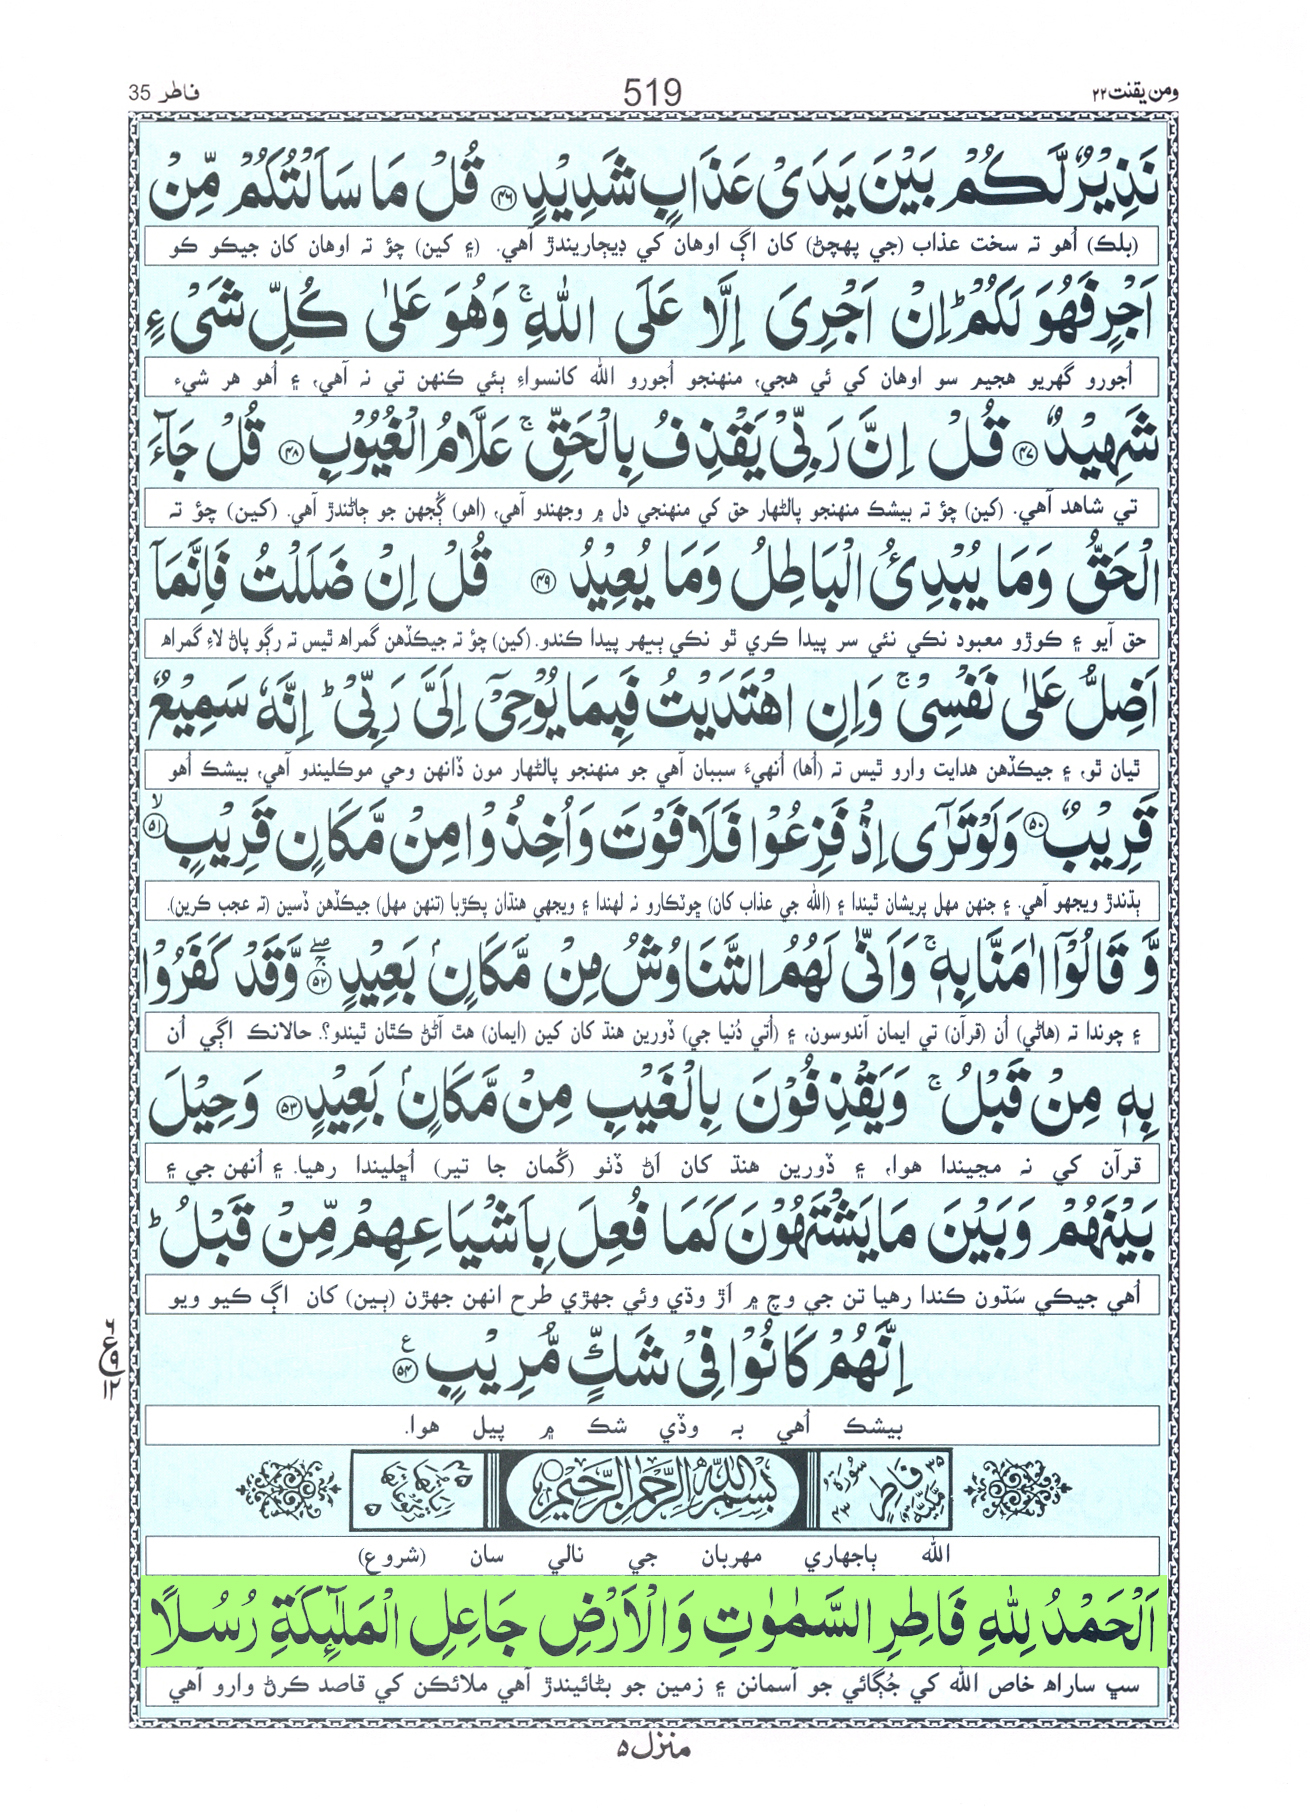 ومن يقنت ۲۲ 519 فاطر 35
نَذِيْرٌ لَّكُمْ بَيْنَ يَدَىْ عَذَابٍ شَدِيْدٍ ۴۶ قُلْ مَا سَاَلْتُكُمْ مِّنْ
(بلڪ) اُھو تہ سخت عذاب (جي پھچڻ) کان اڳ اوھان کي ڊيڄاريندڙ آھي. (۽ کين) چؤ تہ اوھان کان جيڪو ڪو
اَجْرٍ فَهُوَ لَكُمْ ؕ اِنْ اَجْرِىَ اِلَّا عَلَى اللّٰهِ ۚ وَهُوَ عَلٰى كُلِّ شَىْءٍ
اُجورو گھريو ھجيم سو اوھان کي ئي ھجي، منھنجو اُجورو الله کانسواءِ ٻئي ڪنھن تي نہ آھي، ۽ اُھو ھر شيء
شَهِيْدٌ ۴۷ قُلْ اِنَّ رَبِّىْ يَقْذِفُ بِالْحَقِّ ۚ عَلَّامُ الْغُيُوْبِ ۴۸ قُلْ جَآءَ
تي شاھد آھي. (کين) چؤ تہ بيشڪ منھنجو پالڻھار حق کي منھنجي دل ۾ وجھندو آھي، (اھو) ڳُجھن جو ڄاڻندڙ آھي. (کين) چؤ تہ
الْحَقُّ وَمَا يُبْدِئُ الْبَاطِلُ وَمَا يُعِيْدُ ۴۹ قُلْ اِنْ ضَلَلْتُ فَاِنَّمَاۤ
حق آيو ۽ ڪوڙو معبود نڪي نئي سر پيدا ڪري ٿو نڪي ٻيھر پيدا ڪندو. (کين) چؤ تہ جيڪڏھن گمراہ ٿيس تہ رڳو پاڻ لاءِ گمراہ
اَضِلُّ عَلٰى نَفْسِىْ ۚ وَاِنِ اهْتَدَيْتُ فَبِمَا يُوْحِىْۤ اِلَىَّ رَبِّىْ ؕ اِنَّهٗ سَمِيْعٌ
ٿيان ٿو، ۽ جيڪڏھن ھدايت وارو ٿيس تہ (اُھا) اُنھيءَ سببان آھي جو منھنجو پالڻھار مون ڏانھن وحي موڪليندو آھي، بيشڪ اُھو
قَرِيْبٌ ۵۰ وَلَوْ تَرٰٓى اِذْ فَزِعُوْا فَلَا فَوْتَ وَاُخِذُوْا مِنْ مَّكَانٍ قَرِيْبٍ ۙ ۵۱
ٻڌندڙ ويجھو آھي. ۽ جنھن مھل پريشان ٿيندا ۽ (الله جي عذاب کان) ڇوٽڪارو نہ لھندا ۽ ويجھي ھنڌان پڪڙبا (تنھن مھل) جيڪڏھن ڏسين (تہ عجب ڪرين).
وَّقَالُوْۤا اٰمَنَّا بِهٖ ۚ وَاَنّٰى لَهُمُ التَّنَاوُشُ مِنْ مَّكَانٍۢ بَعِيْدٍ ۚۖ ۵۲ وَّقَدْ كَفَرُوْا
۽ چوندا تہ (ھاڻي) اُن (قرآن) تي ايمان آندوسون، ۽ (اُتي دُنيا جي) ڏورين ھنڌ کان کين (ايمان) ھٿ آڻڻ ڪٿان ٿيندو؟. حالانڪ اڳي اُن
بِهٖ مِنْ قَبْلُ ۚ وَيَقْذِفُوْنَ بِالْغَيْبِ مِنْ مَّكَانٍۢ بَعِيْدٍ ۵۳ وَحِيْلَ
قرآن کي نہ مڃيندا ھوا، ۽ ڏورين ھنڌ کان اَڻ ڏٺو (گُمان جا تير) اُڇليندا رھيا. ۽ اُنھن جي ۽
بَيْنَهُمْ وَبَيْنَ مَا يَشْتَهُوْنَ كَمَا فُعِلَ بِاَشْيَاعِهِمْ مِّنْ قَبْلُ ؕ
اُھي جيڪي سَڌون ڪندا رھيا تن جي وچ ۾ اَڙ وڌي وئي جھڙي طرح انھن جھڙن (ٻين) کان اڳ ڪيو ويو
اِنَّهُمْ كَانُوْا فِىْ شَكٍّ مُّرِيْبٍ ۵۴ ع
بيشڪ اُھي بہ وڏي شڪ ۾ پيل ھوا.
ع ۹ ۱۲
۳۵ سُوْرَةُ فَاطِرٍ مَكِّيَّةٌ ۴۳ بِسْمِ اللّٰهِ الرَّحْمٰنِ الرَّحِيْمِ اٰيَاتُهَا ۴۵ رُكُوْعَاتُهَا ۵
الله ٻاجھاري مھربان جي نالي سان (شروع)
اَلْحَمْدُ لِلّٰهِ فَاطِرِ السَّمٰوٰتِ وَالْاَرْضِ جَاعِلِ الْمَلٰٓئِكَةِ رُسُلًا
سڀ ساراھ خاص الله کي جُڳائي جو آسمانن ۽ زمين جو بڻائيندڙ آھي ملائڪن کي قاصد ڪرڻ وارو آھي
منزل ۵